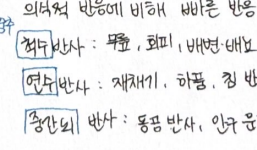 의식적 반응에 비해 빠른 반응
척수 반사 : 무릎, 회피, 배변·배뇨
연수 반사 : 재채기, 하품, 침 반
중간뇌 반사 : 동공 반사, 안구 운